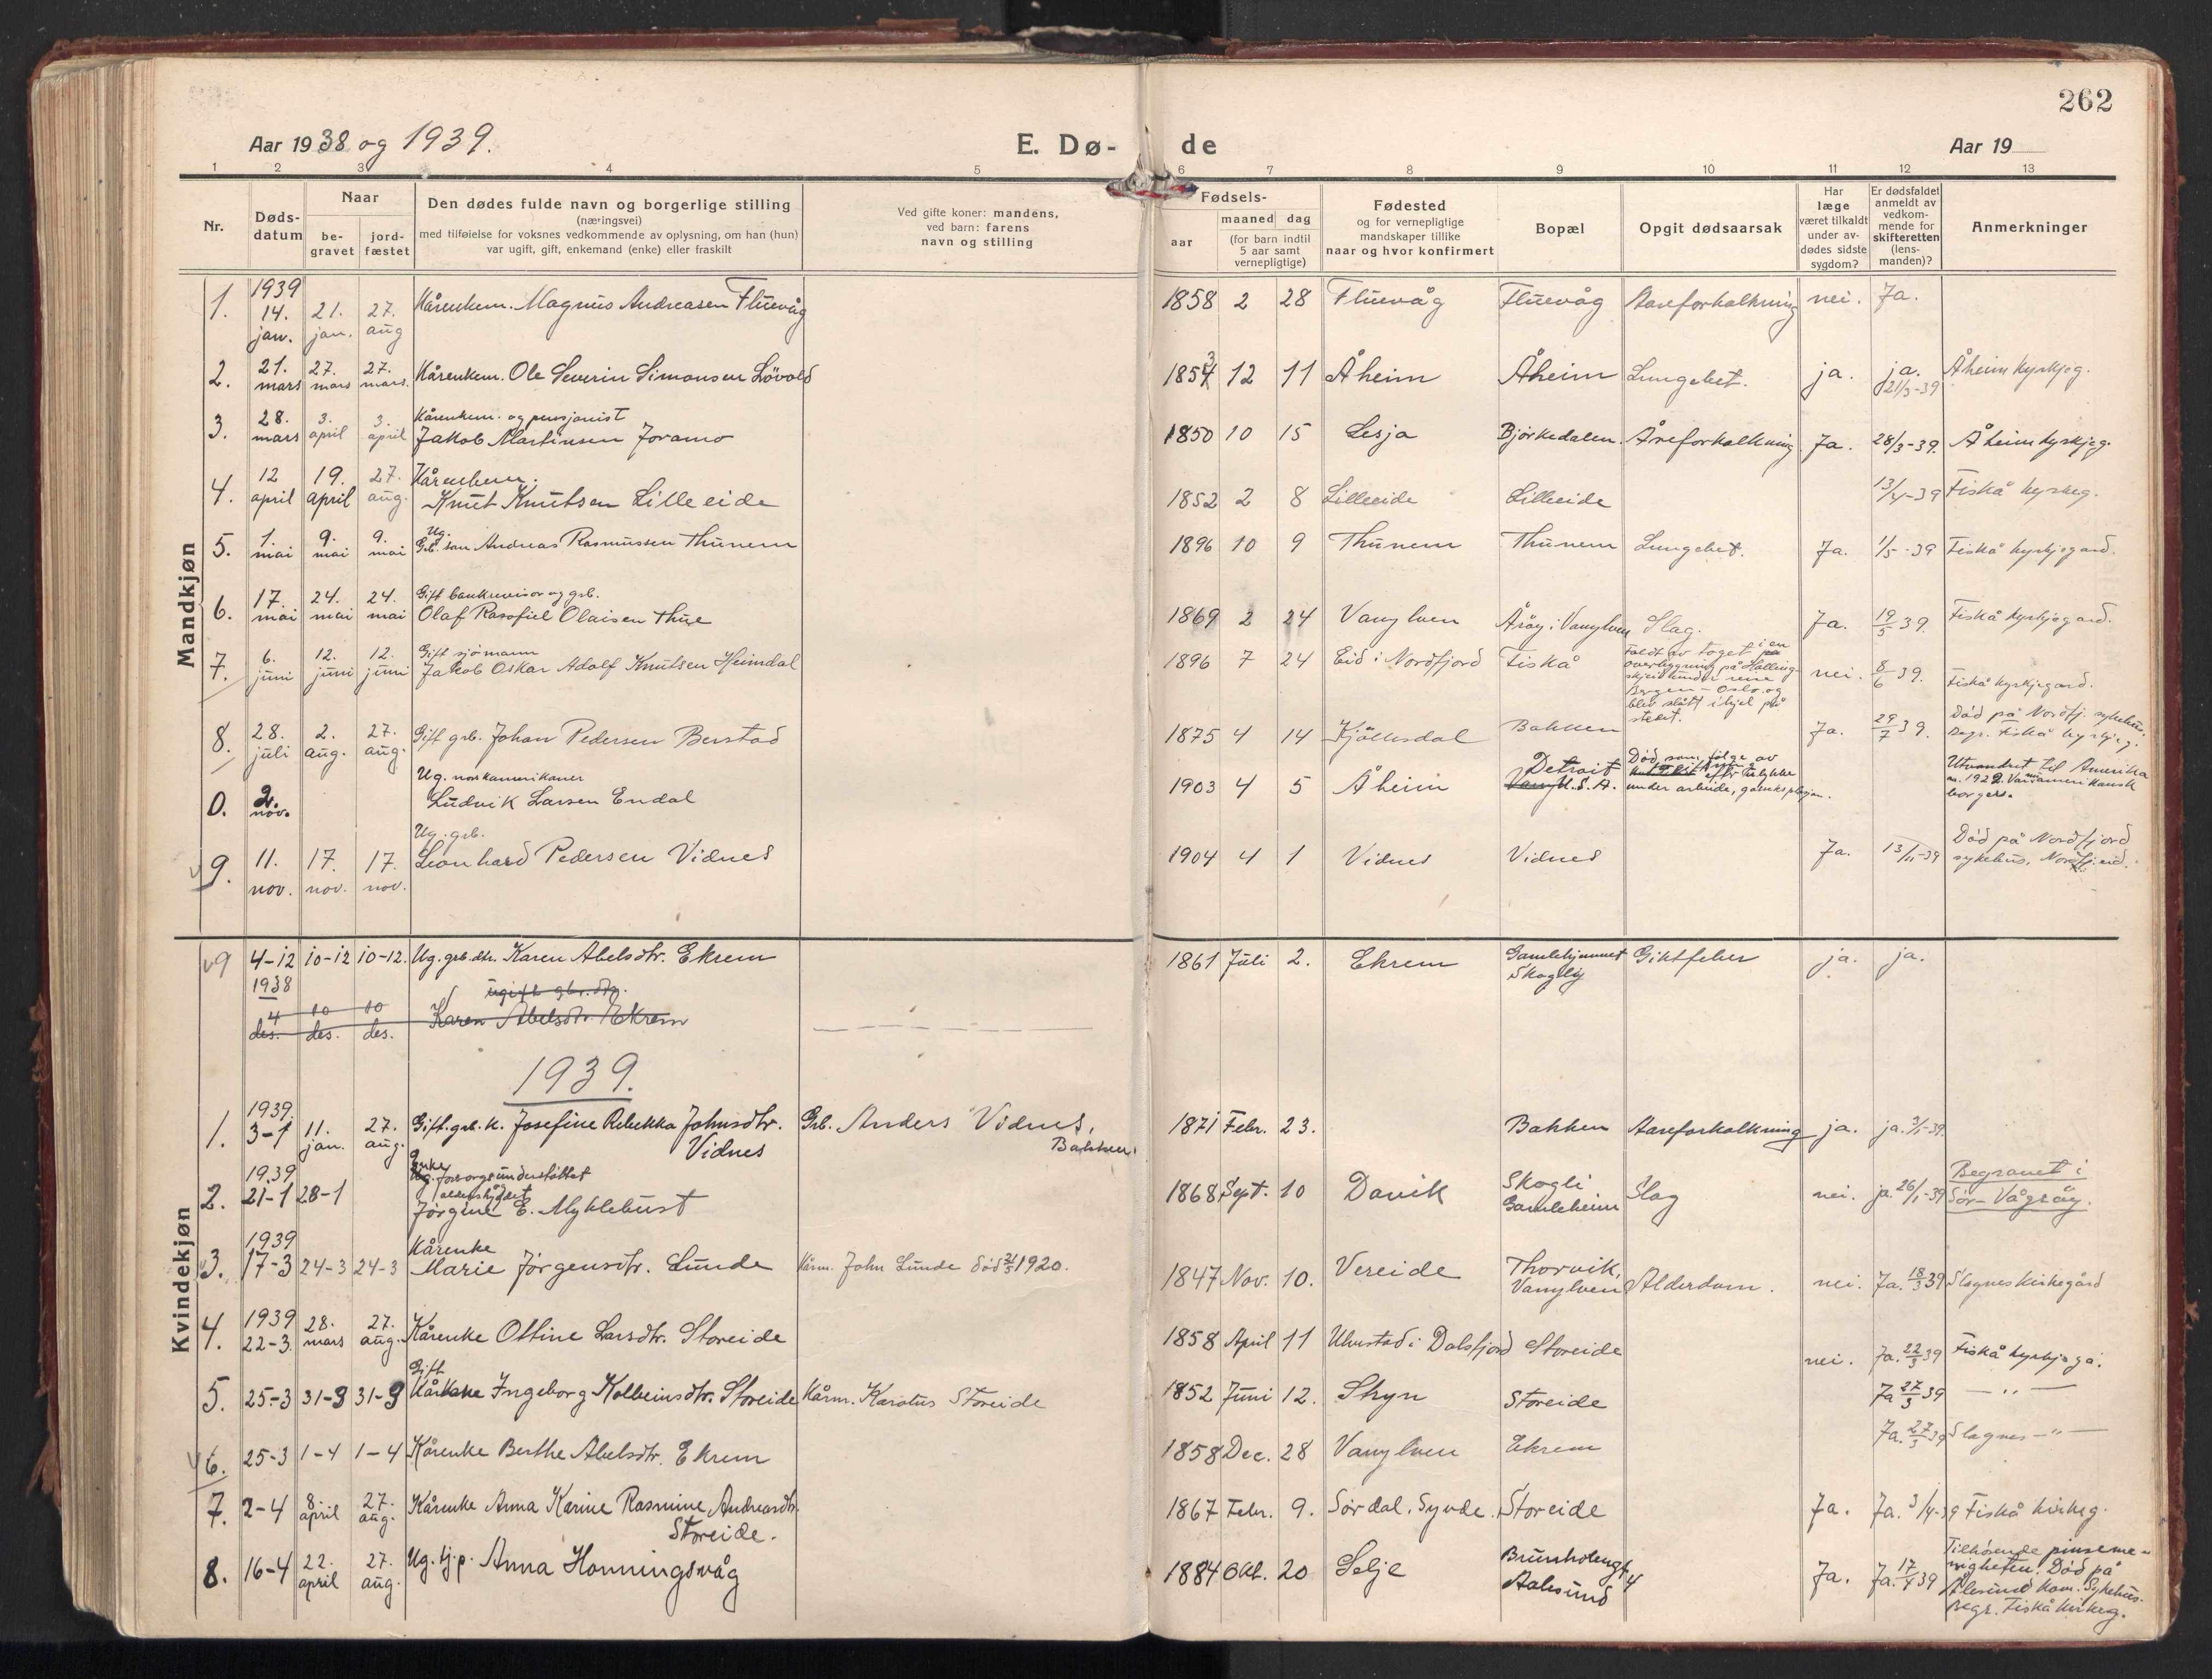 262
Aar 1938 og 1939.
E. Dø-
de
Aar 19
1 2 3 4 5 6 7 8 9 10 11 12 13
Nr.
Døds-
datum
Naar
be-
gravet
jord-
fæstet
Den dødes fulde navn og borgerlige stilling
(næringsvei)
med tilføielse for voksnes vedkommende av oplysning, om han (hun)
var ugift, gift, enkemand (enke) eller fraskilt
Ved gifte koner: mandens,
ved barn: farens
navn og stilling
Fødsels-
aar
maaned dag
(for barn indtil
5 aar samt
vernepligtige)
Fødested
og for vernepligtige
mandskaper tillike
naar og hvor konfirmert
Bopæl
Opgit dødsaarsak
Har
læge
været tilkaldt
under av-
dødes sidste
sygdom?
Er dødsfaldet
anmeldt av
vedkom-
mende for
skifteretten
(lens-
manden)?
Anmerkninger
Mandkjøn
1. 1939 14. jan. 21. jan. 27. aug Kårenkem. Magnus Andreasen Fluevåg 1858 2 28 Fluevåg Fluevåg Aareforkalkning nei. Ja.
2. 21. mars 27. mars 27. mars. Kårenkem. Ole Severin Simonsen Lövold 1853 12 11 Åheim Åheim Lungebet. ja. ja. 21/3-39 Åheim kyrkjeg.
3. 28. mars 3. april 3. april Kårenkem. og pensjonist
Jakob Martinsen Joramo 1850 10 15 Lesja Bjørkedalen. Åreforkalkning Ja. 28/3-39. Åheim kyrkjeg.
4. 12 april 19. april 27. aug. Kårenkem.
Knut Knutsen Lilleeide 1852 2 8 Lilleeide Lilleeide 13/4-39 Fiskå kyrkjeg.
5. 1. mai 9. mai 9. mai Ug.
Grb. søn Andreas Rasmussen Thunem 1896 10 9 Thunem Thunem Lungebet. Ja. 1/5-39 Fiskå kyrkjegard.
6. 17. mai 24. mai 24. mai Gift bankrevisor og grb.
Olaf Rasofiel Olaisen Thue 1869 2 24 Vanylven Åröy i Vanylven Slag. Ja. 19/5 39. Fiskå kyrkjegard.
7. 6. juni 12. juni 12. juni Gift sjömann
Jakob Oskar Adolf Knutsen Heimdal 1896 7 24 Eid i Nordfjord Fiskå Faldt av toget i en
overbygning på Halling-
skjeid under reise
Bergen - Oslo og
blev slått ihjel på
stedet. nei. 8/6 39. Fiskå kyrkjegard.
8. 28. juli 2. aug. 27. aug. Gift grb. Johan Pedersen Berstad 1875 4 14 Kjölsdal Bakken Ja. 29/7 39. Död på Nordfj. sykehus.
Begr. Fiskå kyrkjeg.
0. 2. nov. Ug. norskamerikaner
Ludvik Larsen Endal 1903 4 5 Åheim Detroit
U.S.A. Död som fölge av
ulykke
under arbeide, Utvandret til Amerika
1922. Var amerikansk
borger.
9. 11. nov. 17. nov. 17. nov. Ug. grb.
Leonhard Pedersen Vidnes 1904 4 1 Vidnes Vidnes Ja. 13/11-39 Död på Nordfjord
sykehus, Nordfjeid.
Kvindekjøn
9 4-12 1938 10-12 10-12. Ug. grb.dtr. Karen Abelsdtr. Ekrem 1861 Juli 2. Ekrem Gamlehjemmet
Skogly Giktfeber ja. ja.
4 des. 10 des. 10 des. ugift gbr. dtr.
Karen Abelsdtr. Ekrem
1939.
1. 1939. 3-1 11. jan. 27. aug. Gift. grb. k. Josefine Rebekka Johnsdtr.
Vidnes Grb. Anders Vidnes,
Bakken. 1871 Febr. 23. Bakken Aareforkalkning ja. ja. 3/1-39.
2. 1939 21-1 28-1 Enke
forsorgsunderstöttet
Jørgine E. Myklebust 1868 Sept. 10 Davik Skogli
Gamleheim Slag nei. ja. 26/1-39 Begravet i
Sör-Vågsöy.
3. 1939 17-3 24-3 24-3 Kårenke
Marie Jörgensdtr. Lunde Kårm. John Lunde död 1920. 1847 Nov. 10. Vereide Thorvik,
Vanylven Alderdom. nei. Ja. 18/3 39 Slagnes Kirkegård
4. 1939 22-3. 28. mars 27. aug. Kårenke Ottine Larsdtr. Storeide 1858 April 11 Ulvestad i Dalsfjord Storeide nei. Ja. 22/3 39 Fiskå kyrkjega.
5. 25-3 31-3 31-3 Gift
Ingeborg Kolbeinsdtr. Storeide Kårm. Karolus Storeide 1852 Juni 12. Stryn Storeide Ja 27/3 39 — " —
6. 25-3 1-4 1-4 Kårenke Berthe Abelsdtr. Ekrem 1858 Dec. 28 Vanylven Ekrem Ja. 27/3 39 Slagnes — " —
7. 2-4 8 april 27. aug. Kårenke Anna Karine Rasmine Andreasdtr.
Storeide. 1867 Febr. 9. Sördal, Syvde. Storeide Ja. Ja. 3/4-39 Fiskå kirkeg.
8. 16-4 22. april 27. aug. Ug. tj.p. Anna Honningsvåg 1884 Okt. 20 Selje Brunholmgt. 4
Aalesund Ja. Ja. 17/4 39 Tilhörende pinseme-
nigheten. Död på
Ålesund kom. Sykehus.
Begr. Fiskå kirkeg.